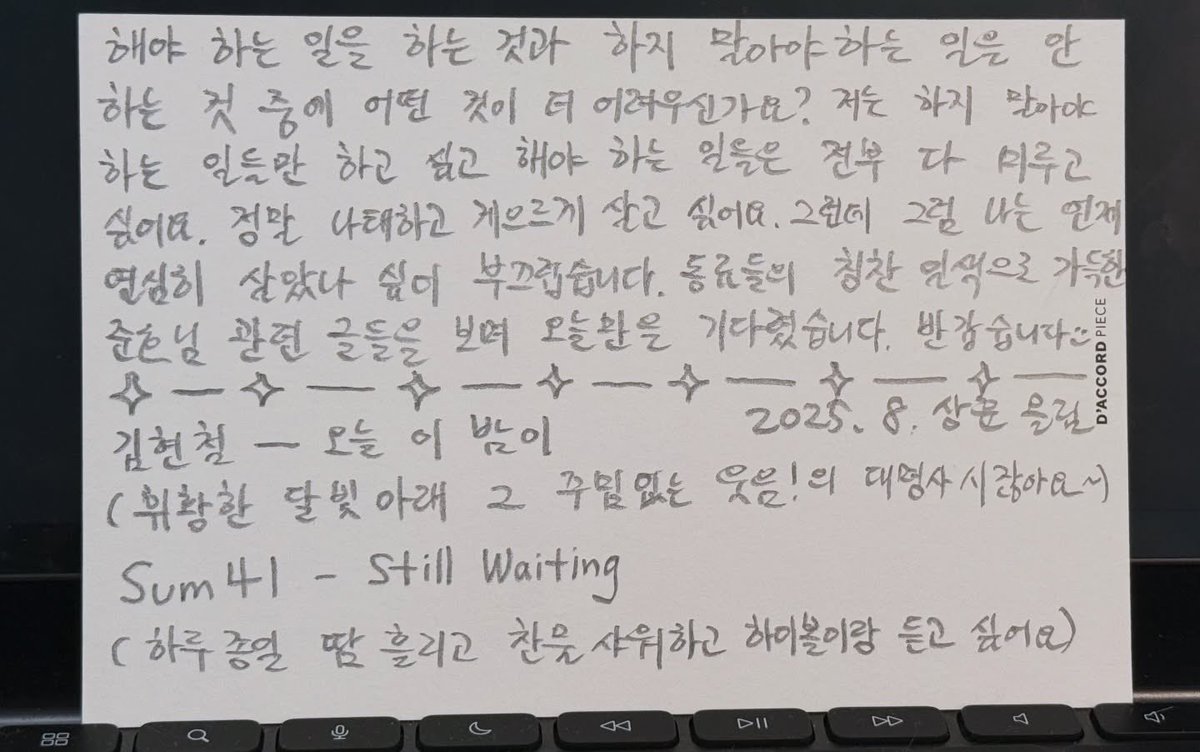 해야 하는 일을 하는 것과 하지 말아야 하는 일을 안
하는 것 중에 어떤 것이 더 어려우신가요? 저는 하지 말아야
하는 일들만 하고 싶고 해야 하는 일들은 전부 다 미루고
싶어요. 정말 나태하고 게으르게 살고 싶어요. 그런데 그럼 나는 언제
열심히 살았나 싶어 부끄럽습니다. 동료들의 칭찬 일색으로 가득한
준흐님 관련 글들을 보며 오늘만을 기다렸습니다. 반갑습니다:)
2025. 8. 상훈 올림
D'ACCORD PIECE
김현철 — 오늘 이 밤이
(휘황한 달빛아래 그 꾸밈없는 웃음!의 대명사시잖아요~)
Sum 41 - Still Waiting
(하루종일 땀 흘리고 찬물샤워하고 하이볼이랑 듣고 싶어요)